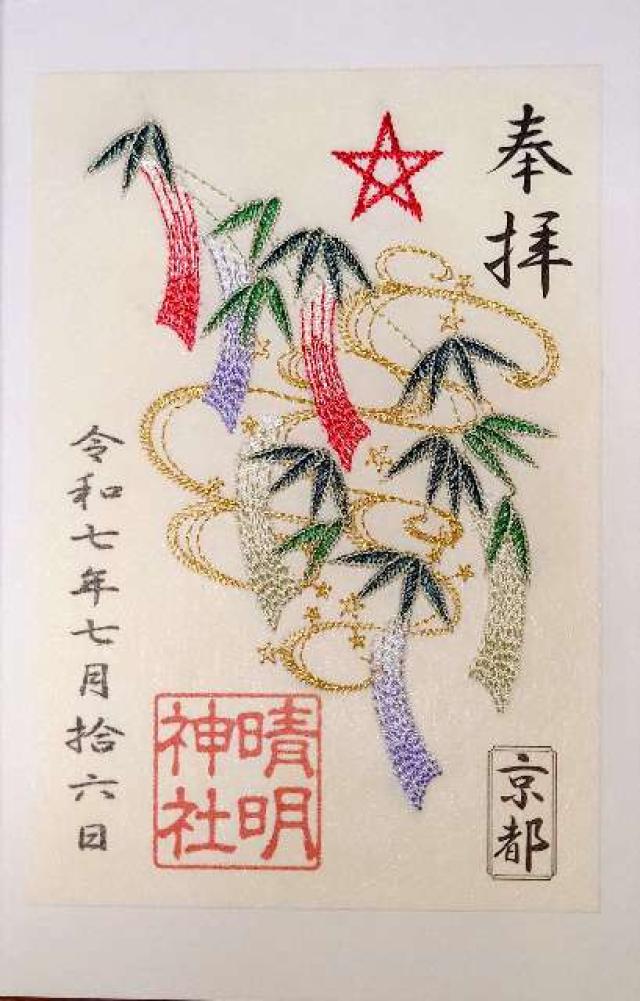 奉拝
京都
晴明
神社
令和七年七月拾六日